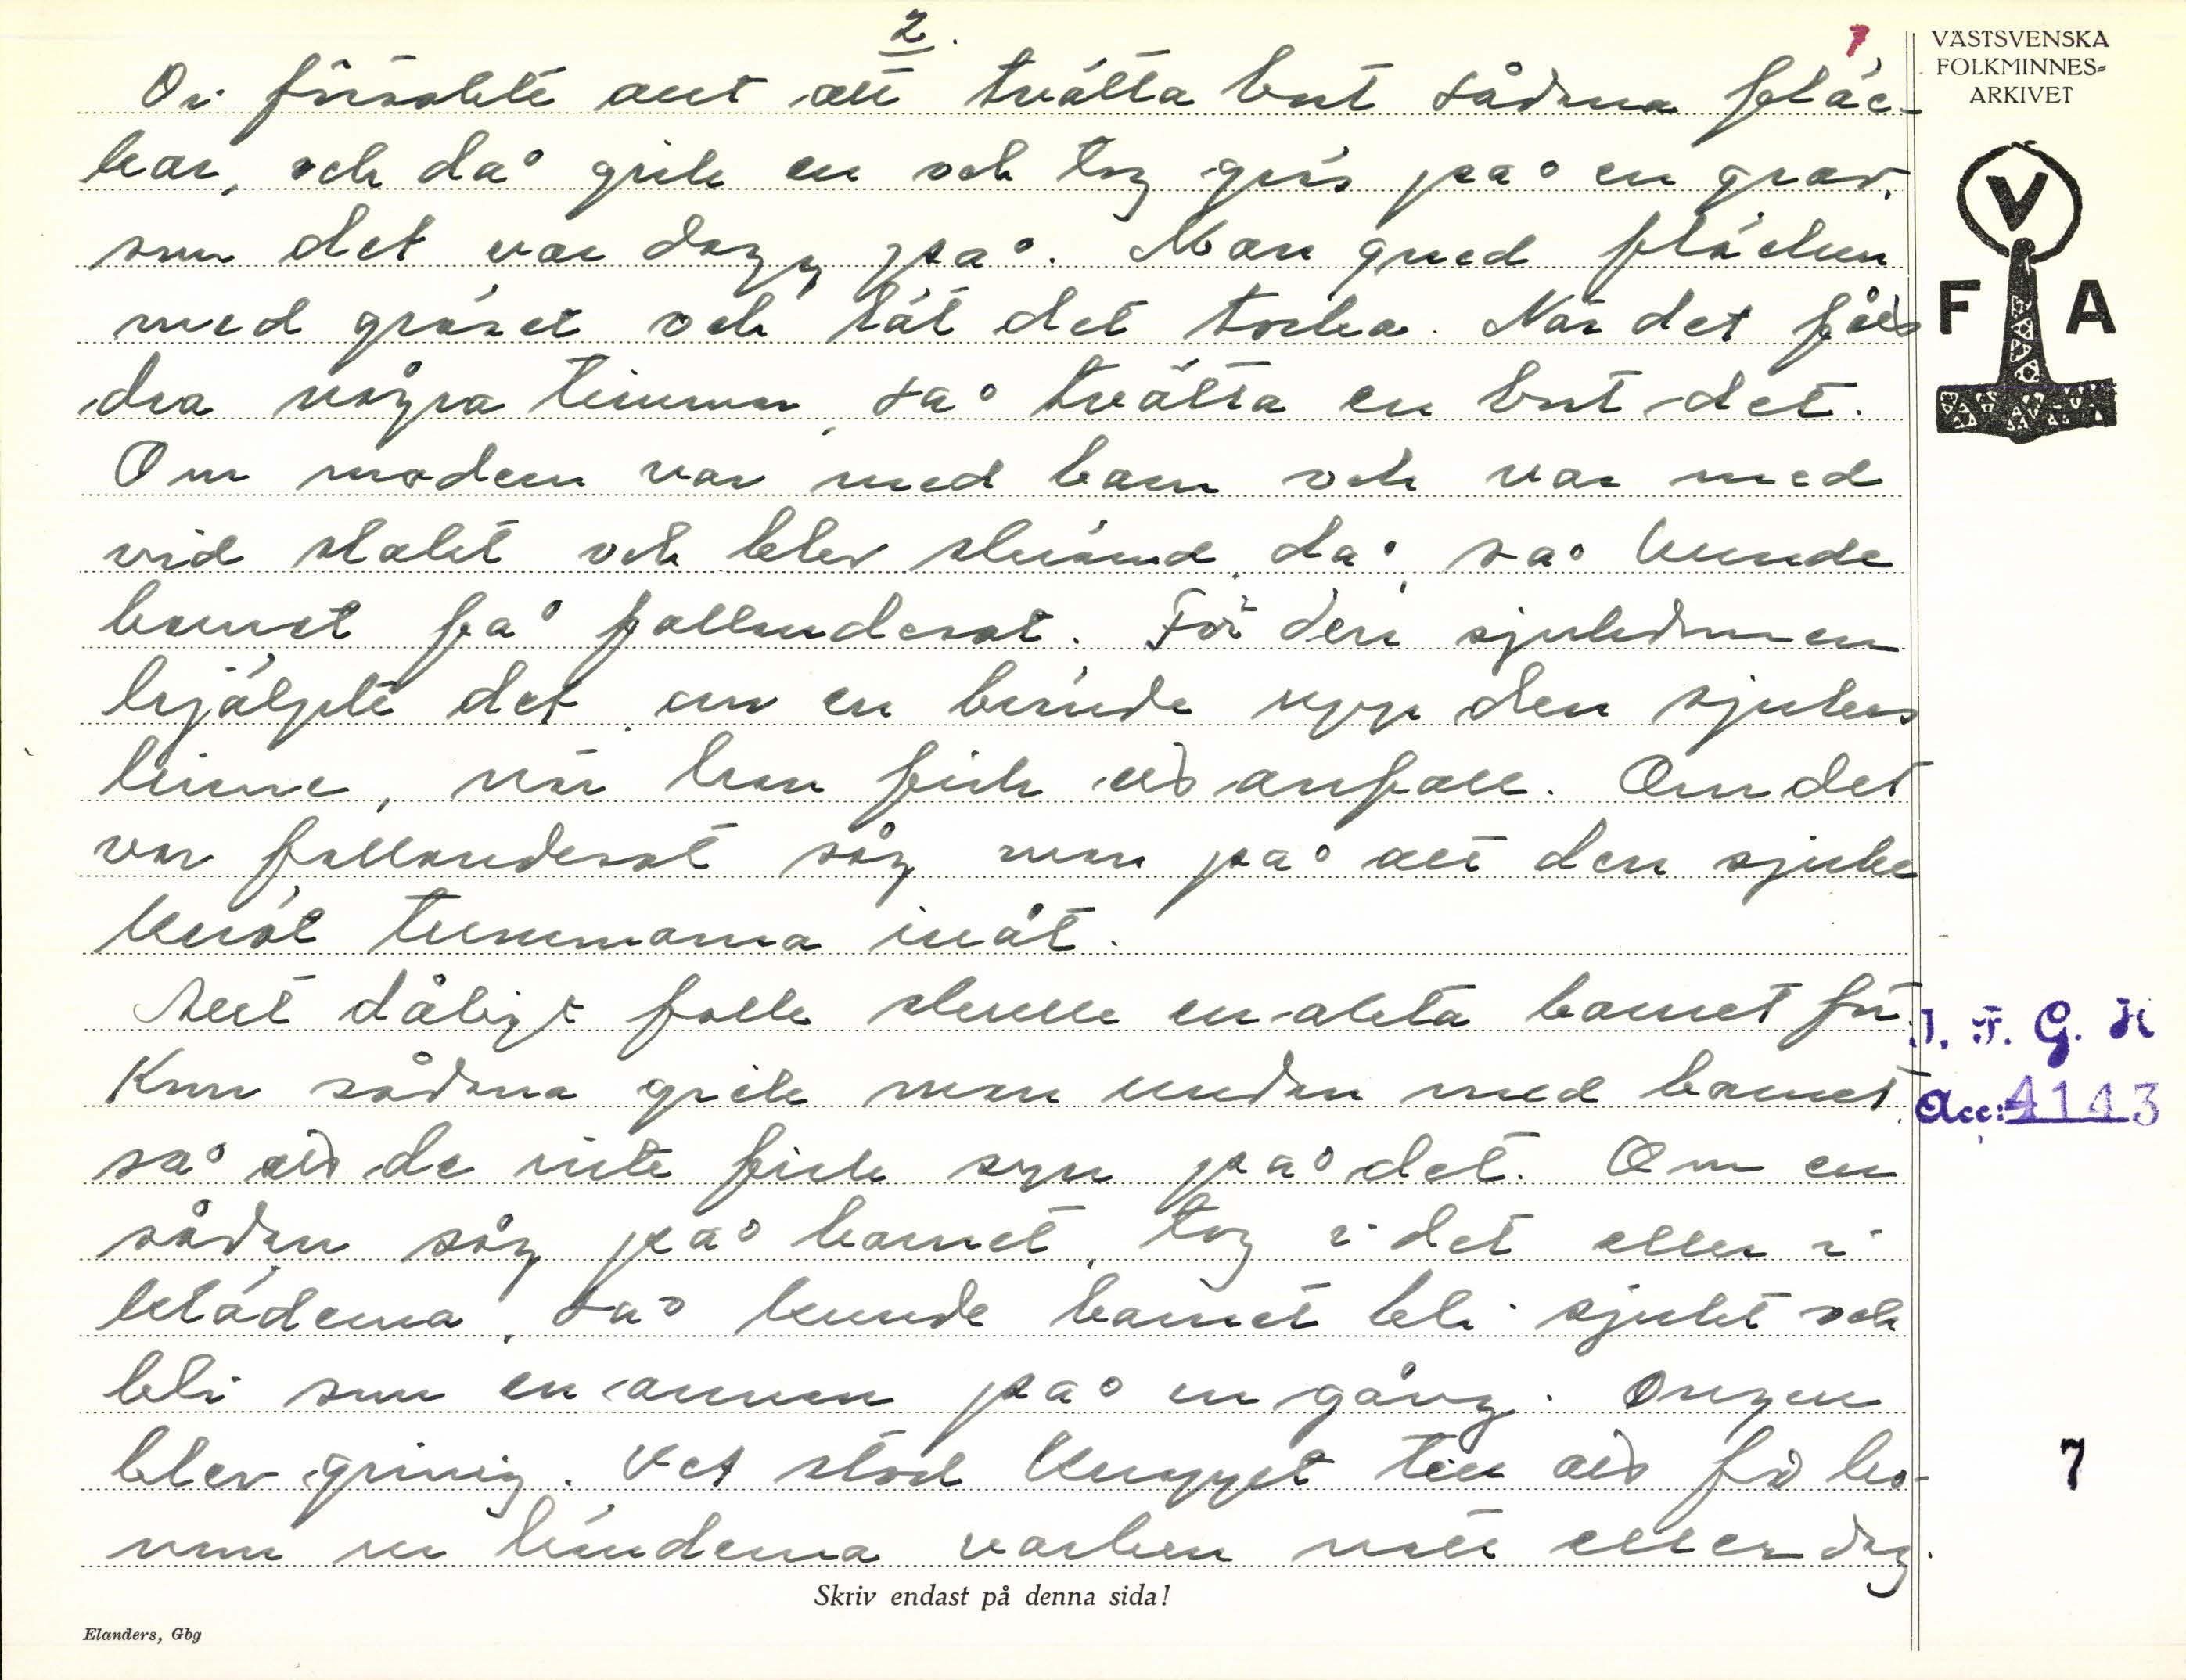 2.
7
VÄSTSVENSKA
FOLKMINNES-
ARKIVET
V
F A
Di försökte ант att tvätta bort sådana fläc-
kar, och då gick en och tog gräs på en grav,
som det var dagg på. Man gned fläcken
med gräset och lät det torka. När detför
dra några timmar, så tvätta en bort det.
Om modern var med barn och var med
vid slakt och blev skrämd då, så kunde
barnet få fallandesot. För den sjukdomen
hjälpte det, om en brände upp den sjukes
linne, när han fick ett anfall. Om det
var fallandesot såg man på att den sjuke
knöt tummarna inåt.
Allt dåligt folk skulle en akta barnet för.
Kom sådana gick man undan med barnet,
så att de inte fick syn på det. Om en
sådan såg på barnet, tog i det eller i
kläderna, så kunde barnet bli sjukt och
bli som en annan på en gång. Ungen
blev grinig. Det stod knappt till att få ho-
nom ur händerna varken natt eller dag.
I. F. G. H
Acc: 4143
7
Skriv endast på denna sida!
Elanders, Gbg